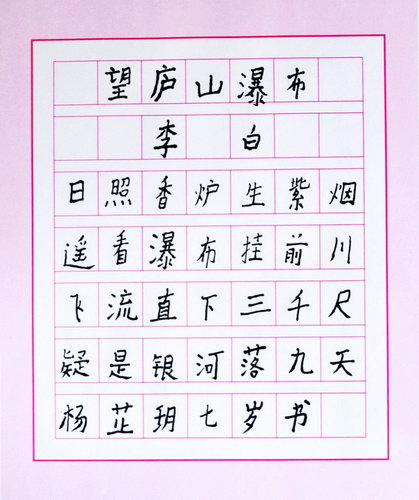 望庐山瀑布
李白
日照香炉生紫烟
遥看瀑布挂前川
飞流直下三千尺
疑是银河落九天
杨芷玥七岁书